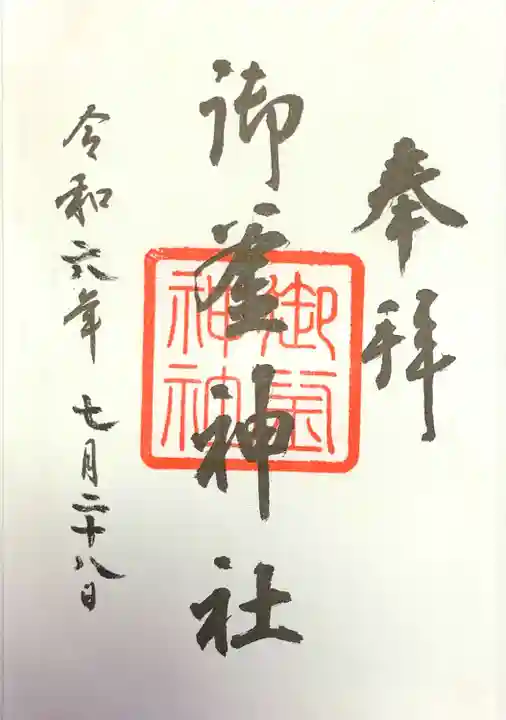 奉拝
御釜神社
御釜神社
令和六年七月二十八日